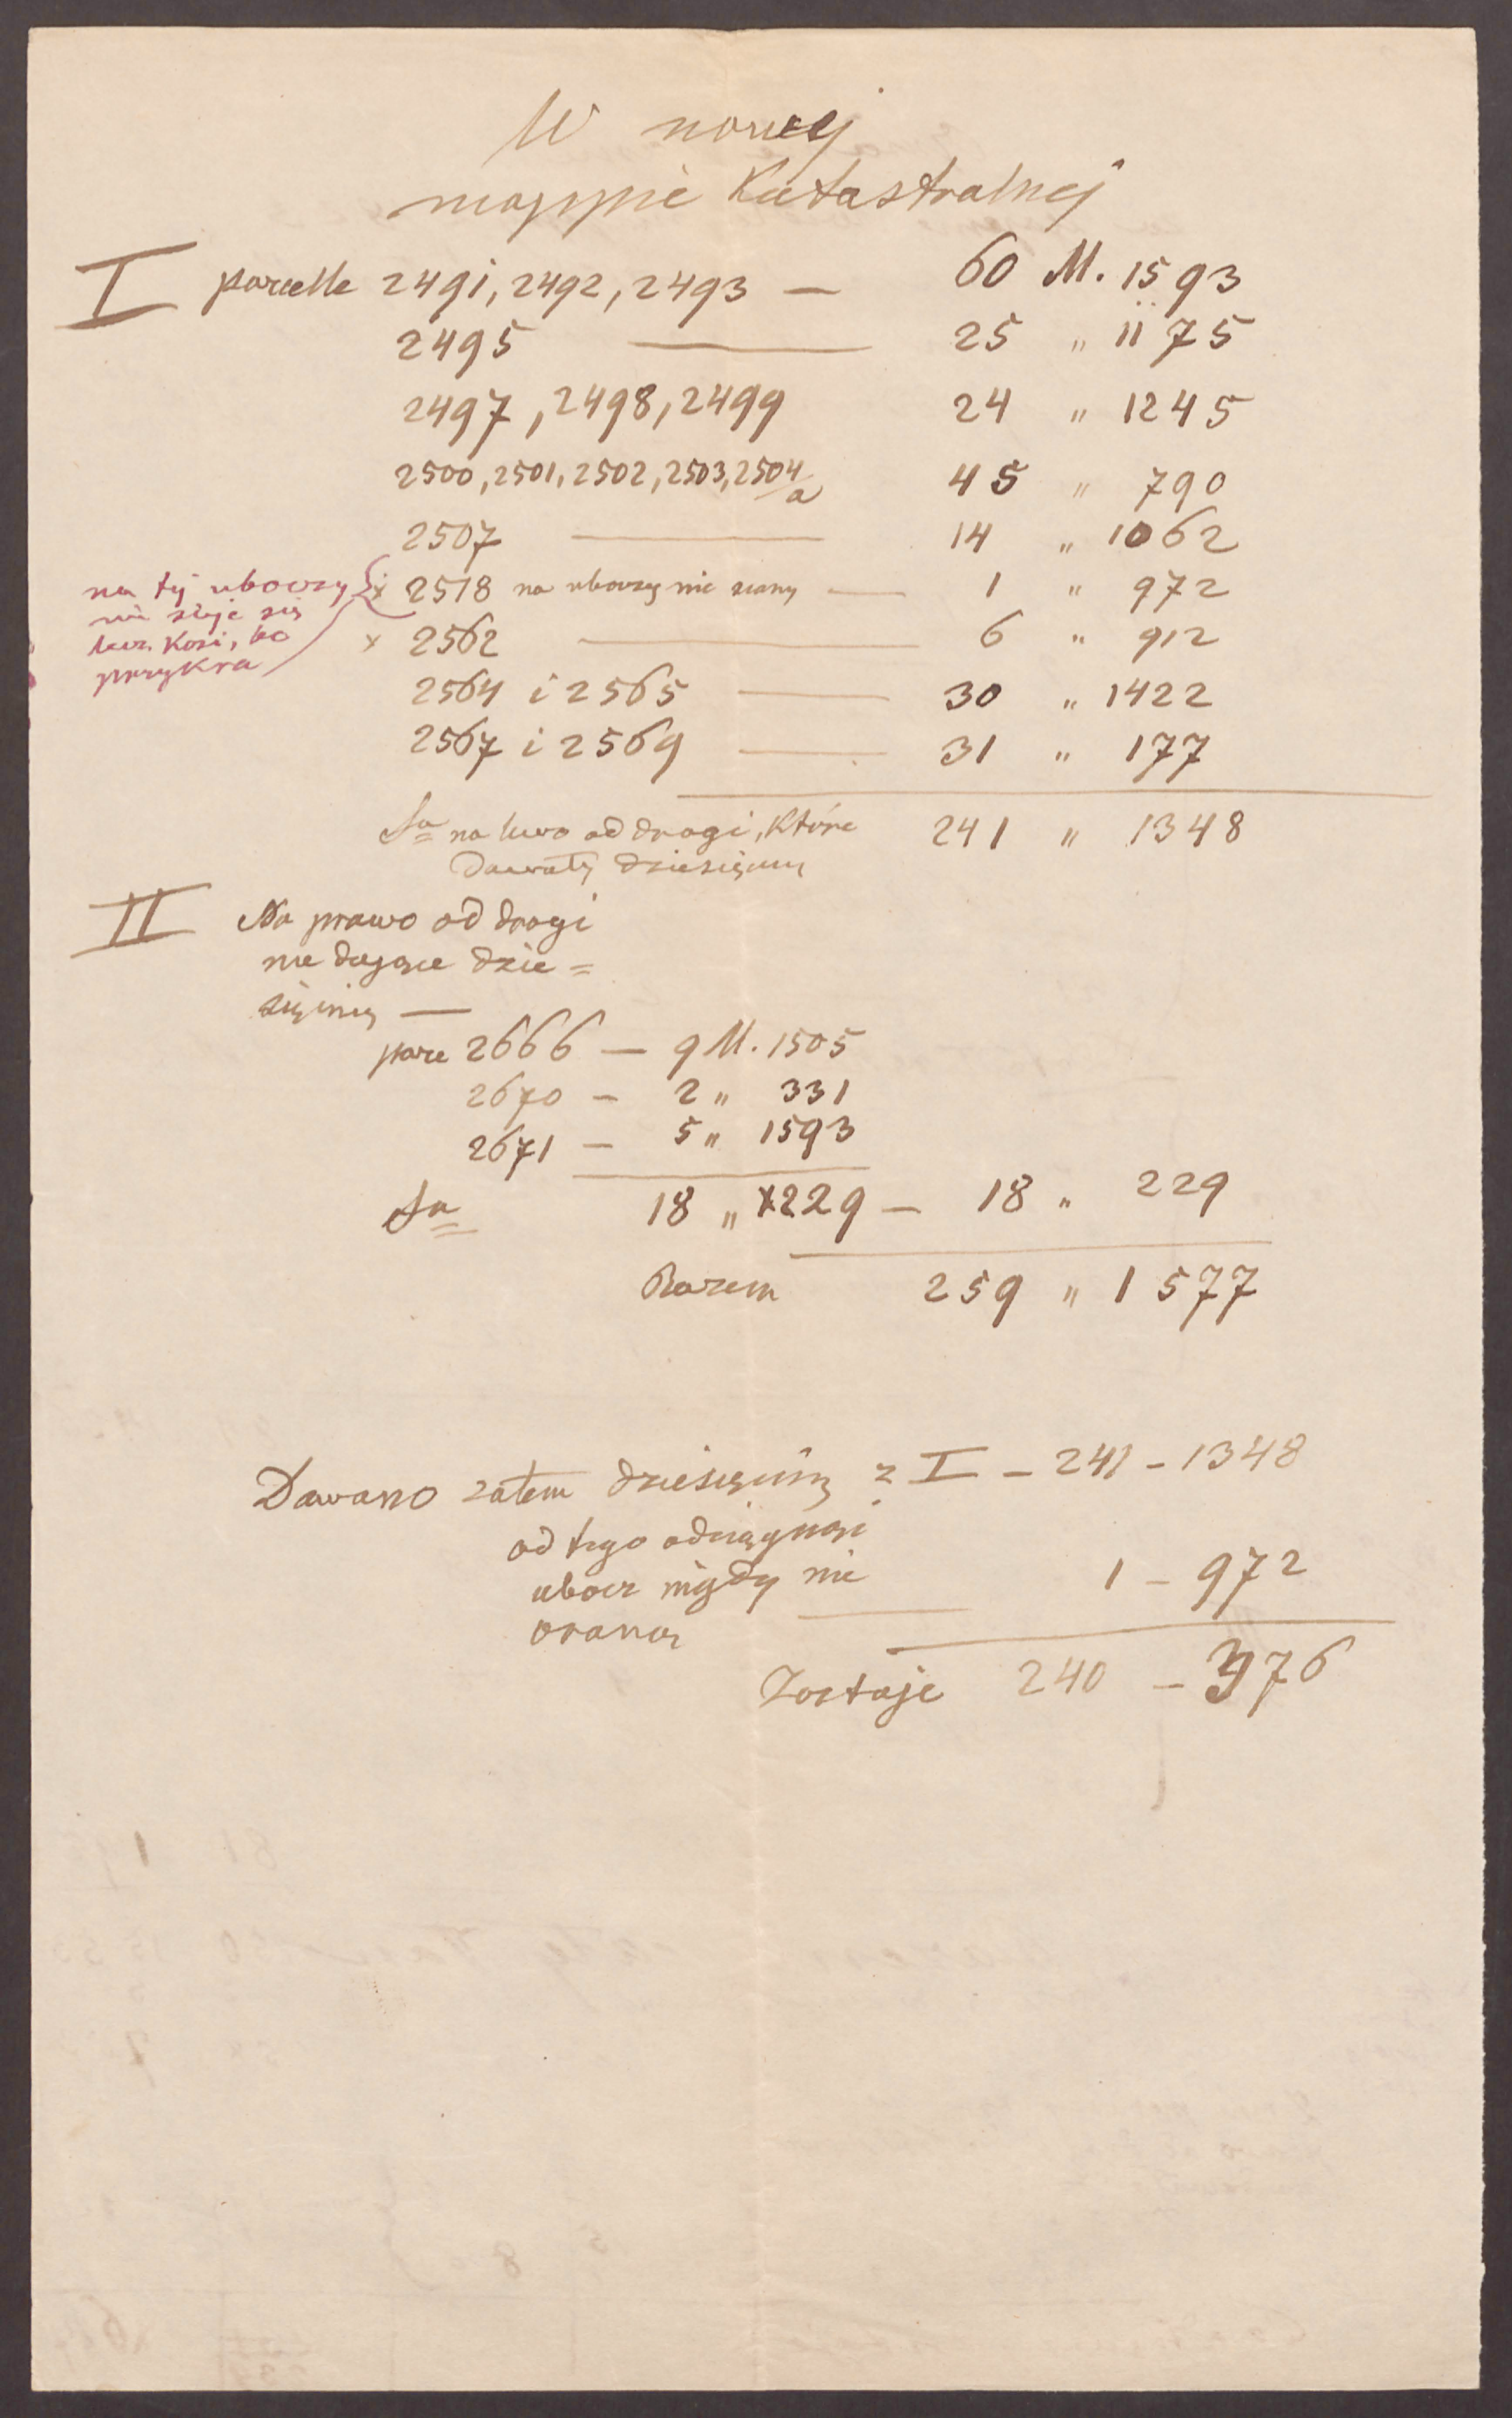 W nowej
mappie Katastralnej
I parcelle 2491, 2492, 2493 — 60 M. 1593
2495 — 25 " 1175
2497, 2498, 2499 24 " 1245
2500, 2501, 2502, 2503, 2504/a 45 " 790
2507 — 14 " 1062
x 2518 na uboczy nie siany — 1 " 972
x 2562 — 6 " 912
na tej uboczy
nie sieje się
lecz Kosi, bo
przykra
2564 i 2565 — 30 " 1422
2567 i 2569 — 31 " 177
Sa na lewo od drogi, Które 241 " 1348
Dawały dziesięciny
II Na prawo od drogi
nie dające dzie=
sięciny —
parc 2666 — 9 M. 1505
2670 — 2 " 331
2671 — 5 " 1593
Sa 18 " 229 — 18 " 229
Razem 259 " 1577
Dawano zatem dziesięciny z I — 241 — 1348
od tego odciągnąć
ubocz nigdy nie 1 — 972
oraną —
Zostaje 240 — 376